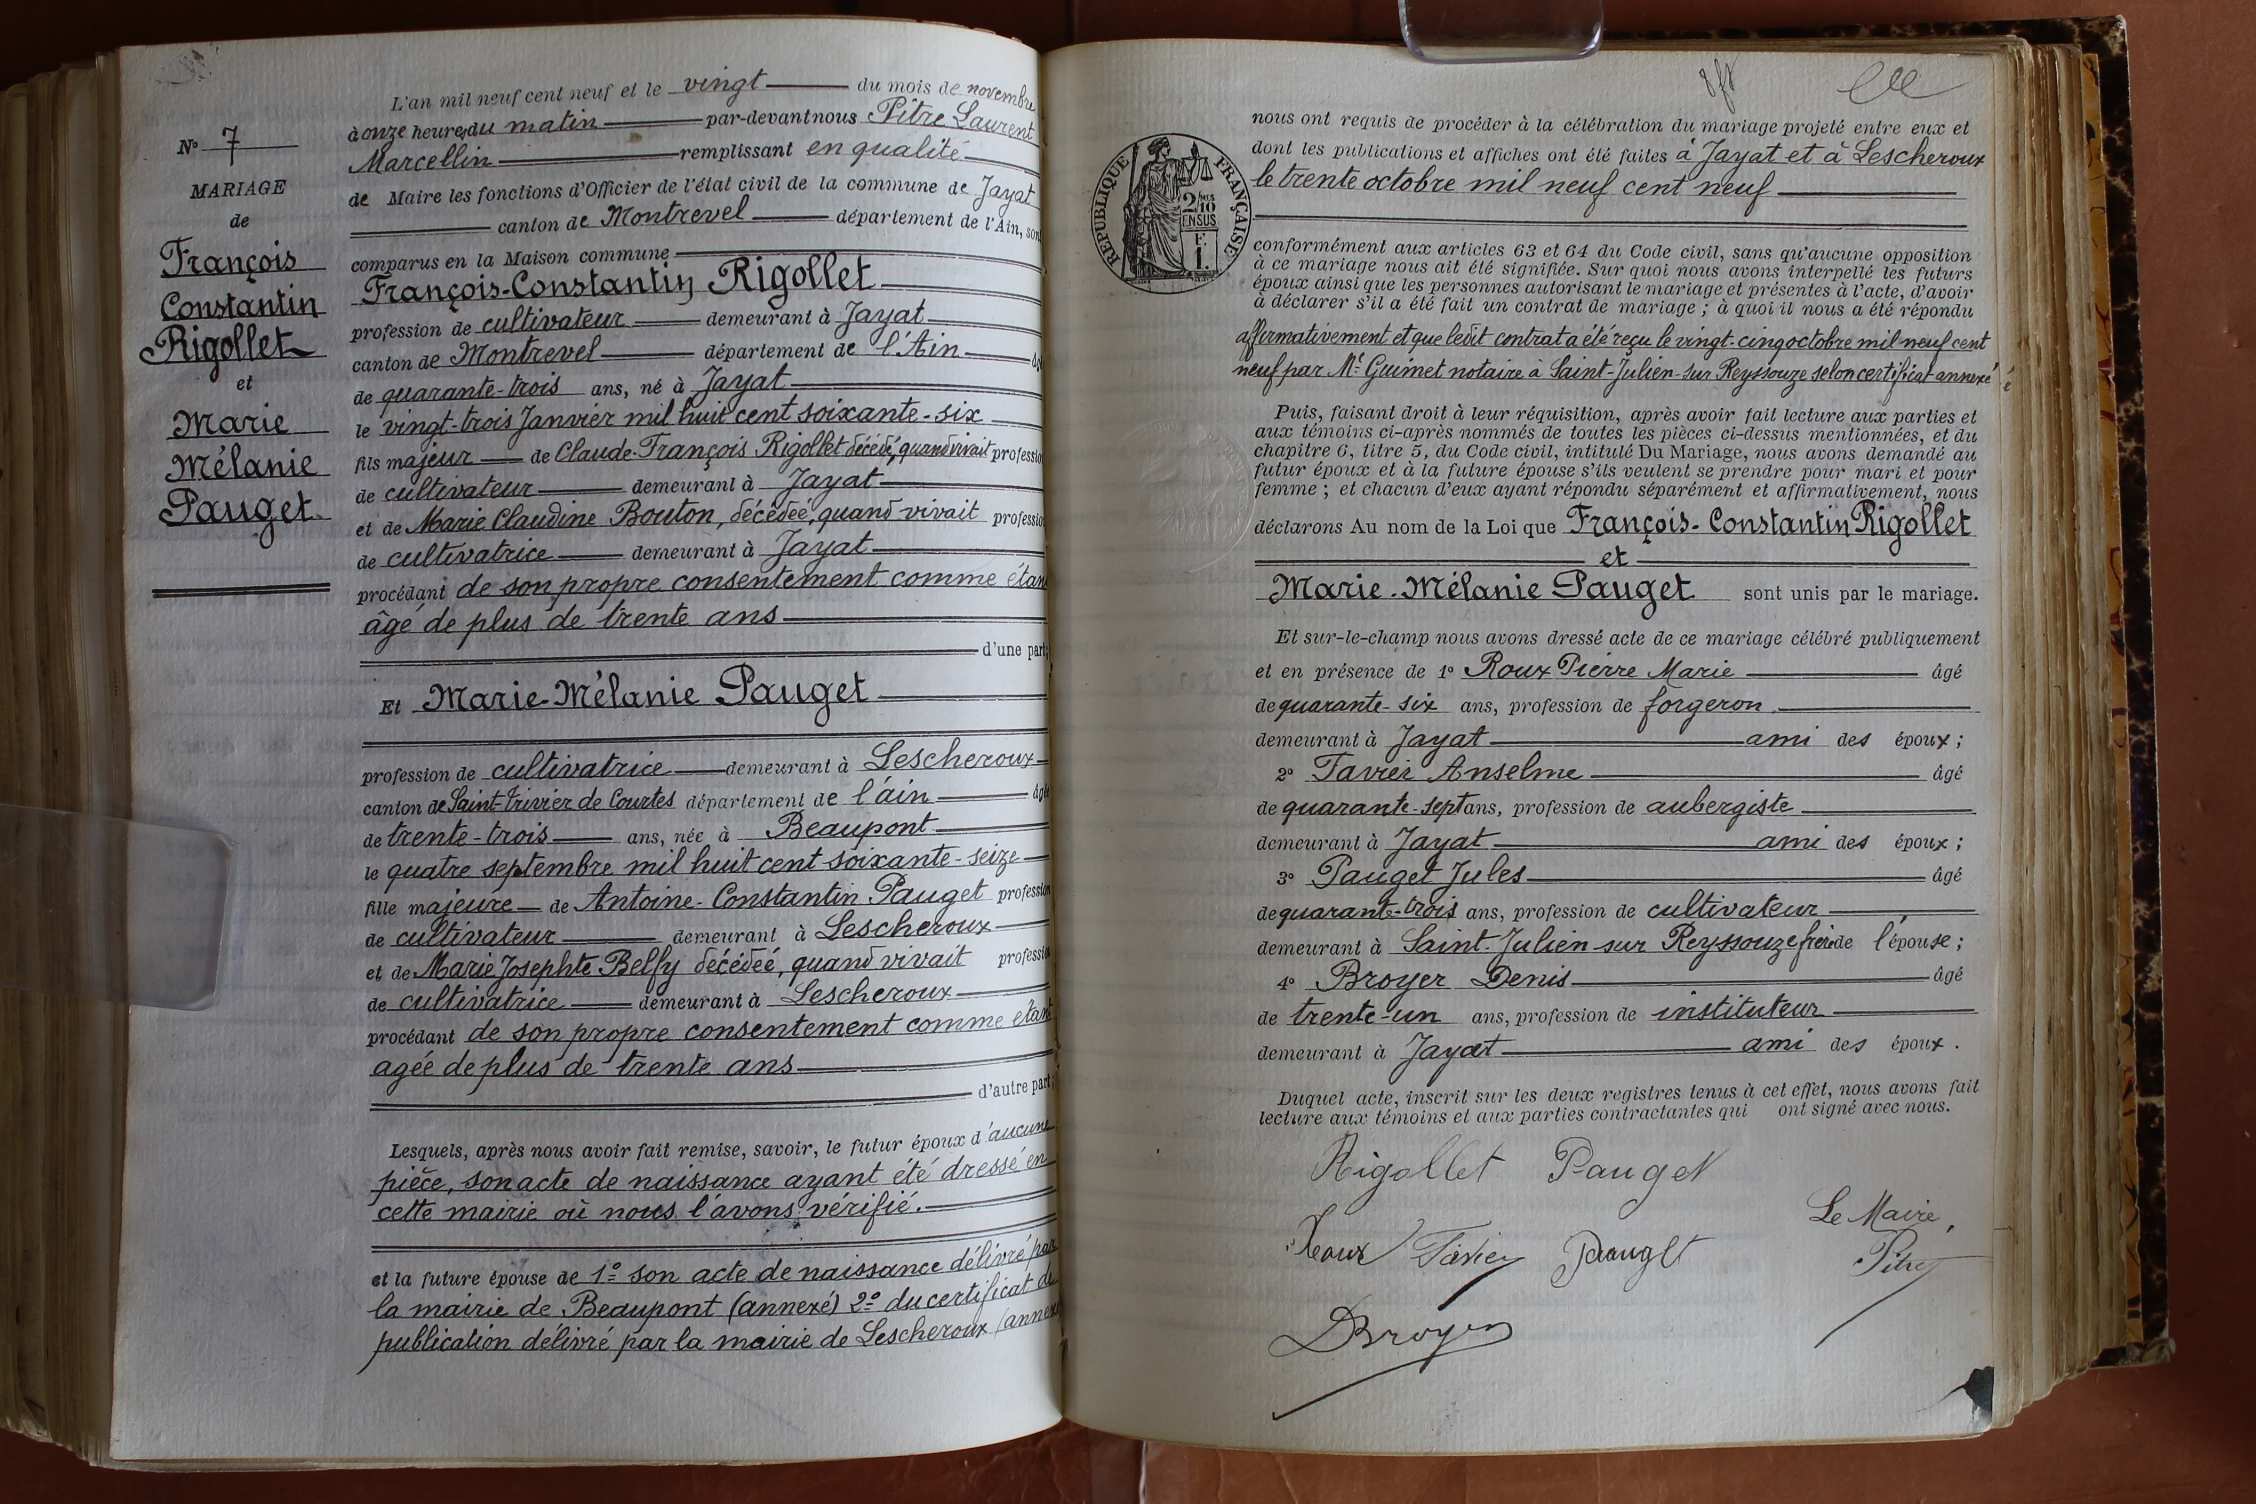 N° 7
MARIAGE
de
François
Constantin
Rigollet
et
Marie
Mélanie
Pauget
L'an mil neuf cent neuf et le vingt du mois de novembre
à onze heures du matin par-devant nous Pitre Laurent
Marcellin remplissant en qualité
de Maire les fonctions d'Officier de l'état civil de la commune de Jayat
canton de Montrevel département de l'Ain, sont
comparus en la Maison commune
François-Constantin Rigollet
profession de cultivateur demeurant à Jayat
canton de Montrevel département de l'Ain âgé
de quarante-trois ans, né à Jayat
le vingt-trois Janvier mil huit cent soixante-six
fils majeur de Claude-François Rigollet décédé, quand vivait profession
de cultivateur demeurant à Jayat
et de Marie Claudine Bouton, décédée, quand vivait profession
de cultivatrice demeurant à Jayat
procédant de son propre consentement comme étant
âgé de plus de trente ans
d'une part;
Et Marie-Mélanie Pauget
profession de cultivatrice demeurant à Lescheroux
canton de Saint-Trivier de Courtes département de l'ain âgée
de trente-trois ans, née à Beaupont
le quatre septembre mil huit cent soixante-seize
fille majeure de Antoine-Constantin Pauget profession
de cultivateur demeurant à Lescheroux
et de Marie Josephte Belfy décédeé, quand vivait profession
de cultivatrice demeurant à Lescheroux
procédant de son propre consentement comme étant
agée de plus de trente ans
d'autre part;
Lesquels, après nous avoir fait remise, savoir, le futur époux d'aucune
pièce, son acte de naissance ayant été dressé en
cette mairie où nous l'avons vérifié.
et la future épouse de 1° son acte de naissance délivré par
la mairie de Beaupont (annexé) 2° du certificat de
publication délivré par la mairie de Lescheroux (annexé
RÉPUBLIQUE FRANÇAISE
2/10 MES
EN SUS
F.
1.
nous ont requis de procéder à la célébration du mariage projeté entre eux et
dont les publications et affiches ont été faites à Jayat et à Lescheroux
le trente octobre mil neuf cent neuf
conformément aux articles 63 et 64 du Code civil, sans qu'aucune opposition
à ce mariage nous ait été signifiée. Sur quoi nous avons interpellé les futurs
époux ainsi que les personnes autorisant le mariage et présentes à l'acte, d'avoir
à déclarer s'il a été fait un contrat de mariage ; à quoi il nous a été répondu
affirmativement et que ledit contrat a été reçu le vingt-cinq octobre mil neuf cent
neuf par Me Guimet notaire à Saint-Julien-sur Reyssouze selon certificat annexé
Puis, faisant droit à leur réquisition, après avoir fait lecture aux parties et
aux témoins ci-après nommés de toutes les pièces ci-dessus mentionnées, et du
chapitre 6, titre 5, du Code civil, intitulé Du Mariage, nous avons demandé au
futur époux et à la future épouse s'ils veulent se prendre pour mari et pour
femme ; et chacun d'eux ayant répondu séparément et affirmativement, nous
déclarons Au nom de la Loi que François-Constantin Rigollet
et
Marie-Mélanie Pauget sont unis par le mariage.
Et sur-le-champ nous avons dressé acte de ce mariage célébré publiquement
et en présence de 1° Roux Pierre Marie âgé
de quarante-six ans, profession de forgeron
demeurant à Jayat ami des époux ;
2° Tavier Anselme âgé
de quarante-sept ans, profession de aubergiste
demeurant à Jayat ami des époux ;
3° Pauget Jules âgé
de quarante-trois ans, profession de cultivateur
demeurant à Saint-Julien-sur Reyssouze frère de l'épouse ;
4° Broyer Denis âgé
de trente-un ans, profession de instituteur
demeurant à Jayat ami des époux.
Duquel acte, inscrit sur les deux registres tenus à cet effet, nous avons fait
lecture aux témoins et aux parties contractantes qui ont signé avec nous.
Rigollet Pauget
Le Maire,
Roux Tavier Pauget Pitre
DBroyer